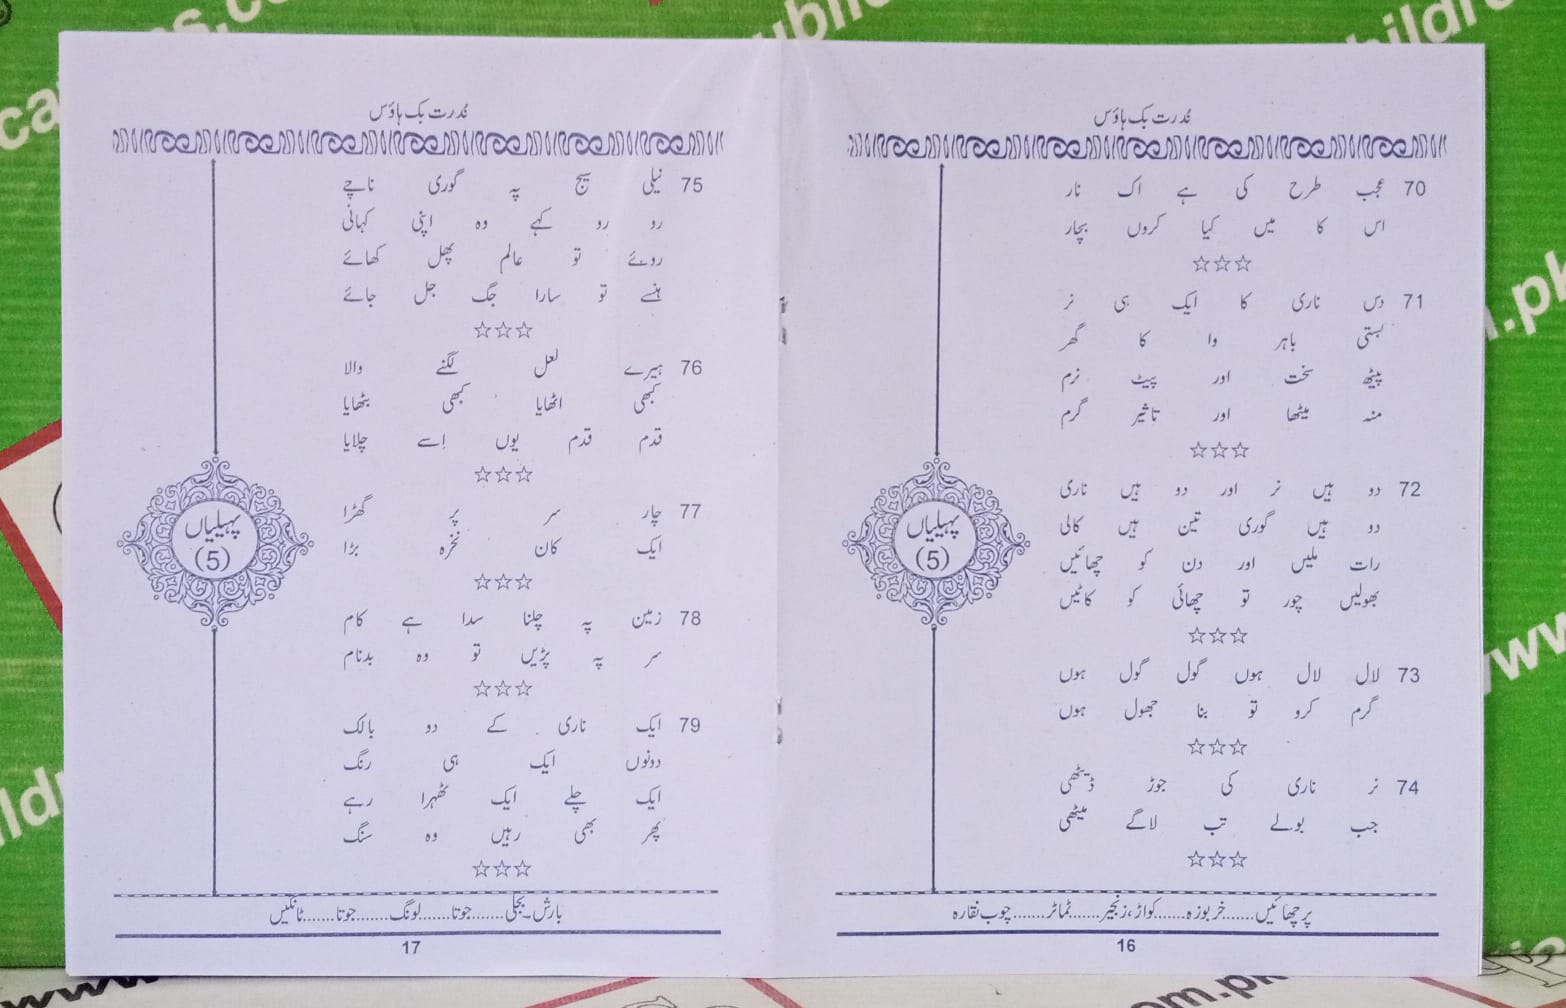 قدرت بک ہاؤس
70 عجب طرح کی ہے اک نار
اس کا میں کیا کروں بچار
☆☆☆
71 دس ناری کا ایک ہی نر
بستی باہر وا کا گھر
پیٹھ سخت اور پیٹ نرم
منہ میٹھا اور تاثیر گرم
☆☆☆
72 دو ہیں نر اور دو ہیں ناری
دو ہیں گوری تین ہیں کالی
رات ملیں اور دن کو چھائیں
بھولیں چور تو چھائی کو کاٹیں
☆☆☆
73 لال لال ہوں گول گول ہوں
گرم کرو تو بنا جھول ہوں
☆☆☆
74 نر ناری کی جوڑ ڈیٹھی
جب بولے تب لاگے میٹھی
☆☆☆
پہیلیاں
(5)
پرچھائیں......خربوزہ......کواڑ،زنجیر......ٹماٹر......چوب نقارہ
16
قدرت بک ہاؤس
75 نیلی سیج پہ گوری ناچے
رو رو کہے وہ اپنی کہانی
روئے تو عالم پھل کھائے
ہنسے تو سارا جگ جل جائے
☆☆☆
76 ہیرے لعل لگنے والا
کبھی اٹھایا کبھی بٹھایا
قدم قدم یوں اِسے چلایا
☆☆☆
77 چار سر پر گھڑا
ایک کان نخرہ بڑا
☆☆☆
78 زمین پہ چلنا سدا ہے کام
سر پہ پڑیں تو وہ بدنام
☆☆☆
79 ایک ناری کے دو بالک
دونوں ایک ہی رنگ
ایک چلے ایک ٹھہرا رہے
پھر بھی رہیں وہ سنگ
☆☆☆
پہیلیاں
(5)
بارش۔بجلی......جوتا......لونگ......جوتا......ٹانگیں
17